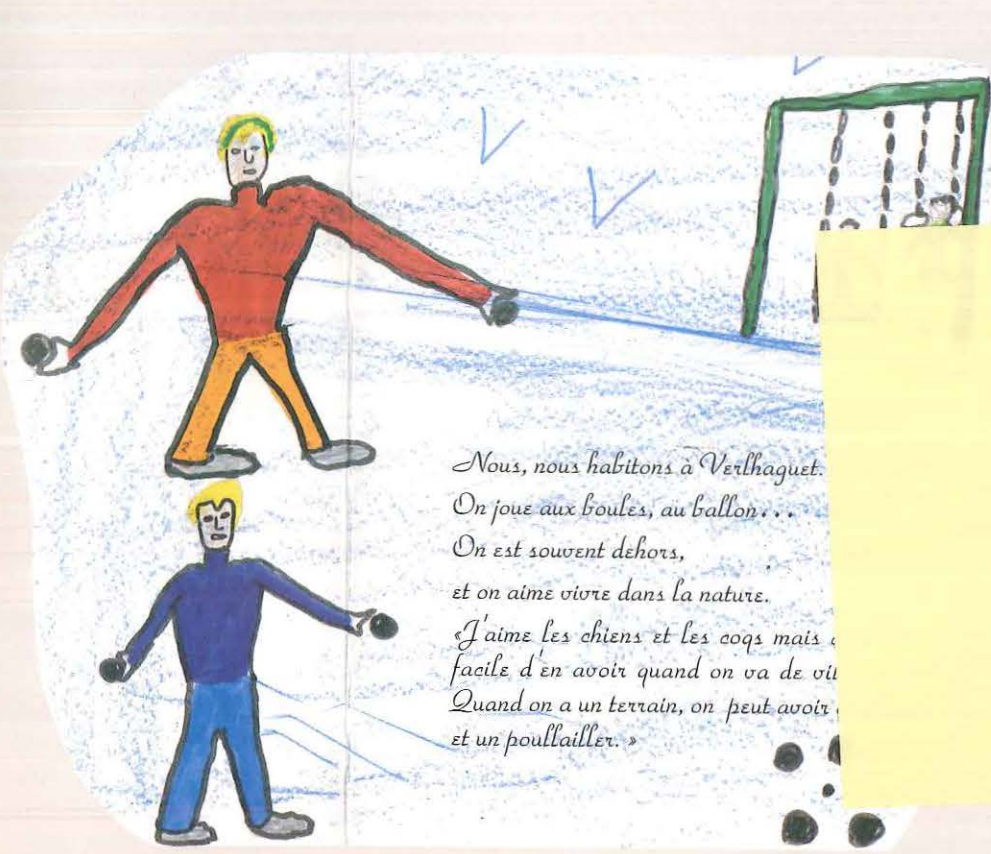 Nous, nous habitons à Verlhaguet.
On joue aux boules, au ballon...
On est souvent dehors,
et on aime vivre dans la nature.
«J'aime les chiens et les coqs mais
facile d'en avoir quand on va de
Quand on a un terrain, on peut avoir
et un poullailler. »